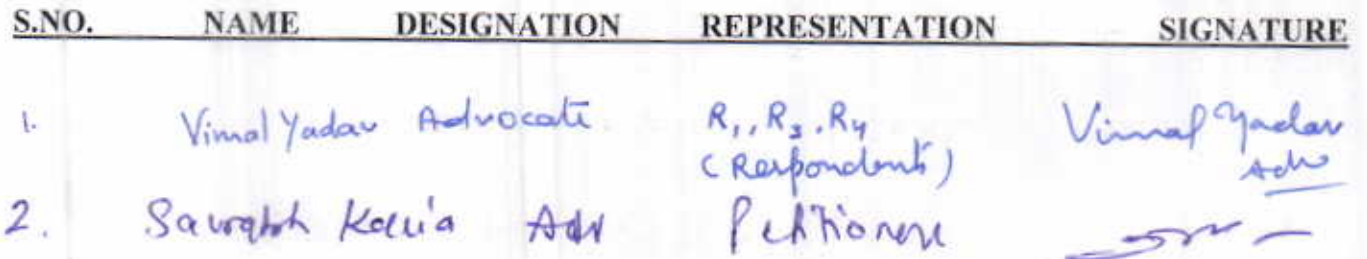 S.NO. NAME DESIGNATION REPRESENTATION SIGNATURE
1. Vimal Yadav Advocate. R1, R3, R4 Vimal Yadav
(Respondents) Adv
2. Saurabh Kalia Adv Petitioners